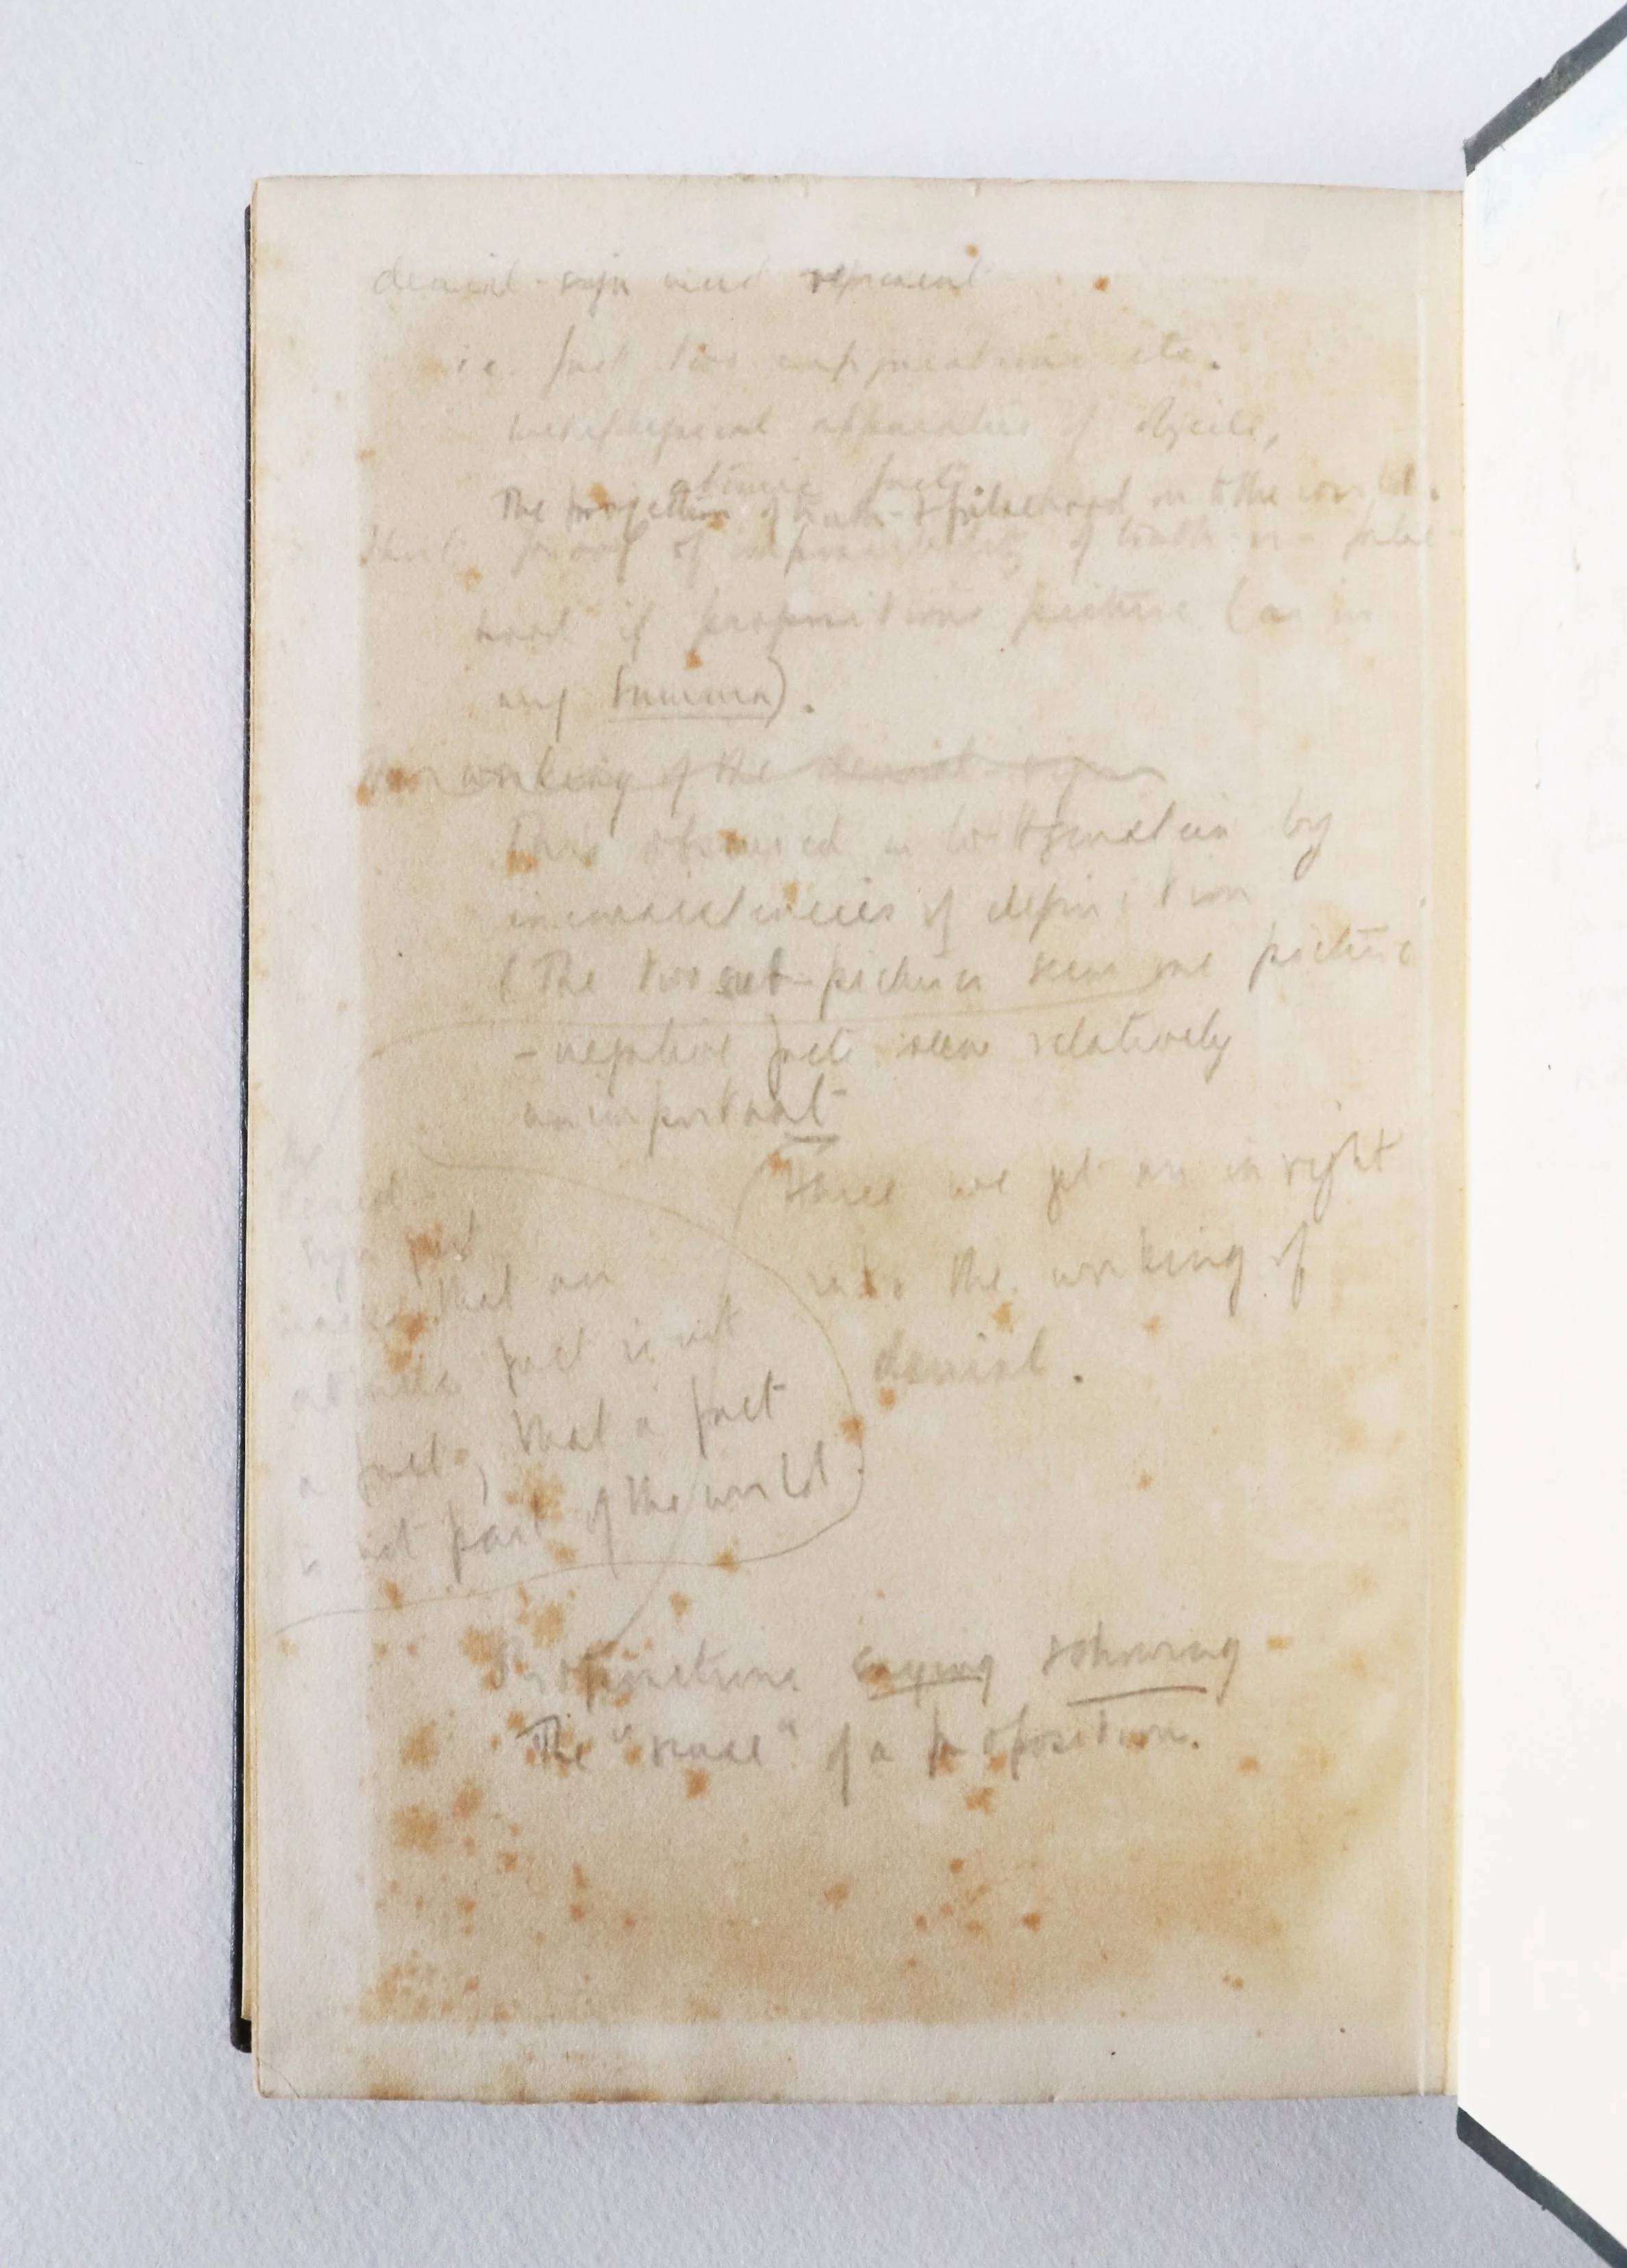 denial-sign must represent
i.e. fact two configurations etc.
metaphysical apparatus of objects,
atomic facts
The projection of truth-&falsehood in to the world.
proof of impossibility of truth-or-false-
hood if propositions picture (as in
my Summa).
working of the denial-sign
This obscured in Wittgenstein by
inconsistencies of definition
(The two sub-pictures seem one picture
-negative facts seem relatively
unimportant
Here we get an insight
into the working of
denial.
The
denial
sign
means that an
atomic fact is not
a fact, that a fact
is not part of the world
Propositions saying & showing
The "sense" of a proposition.